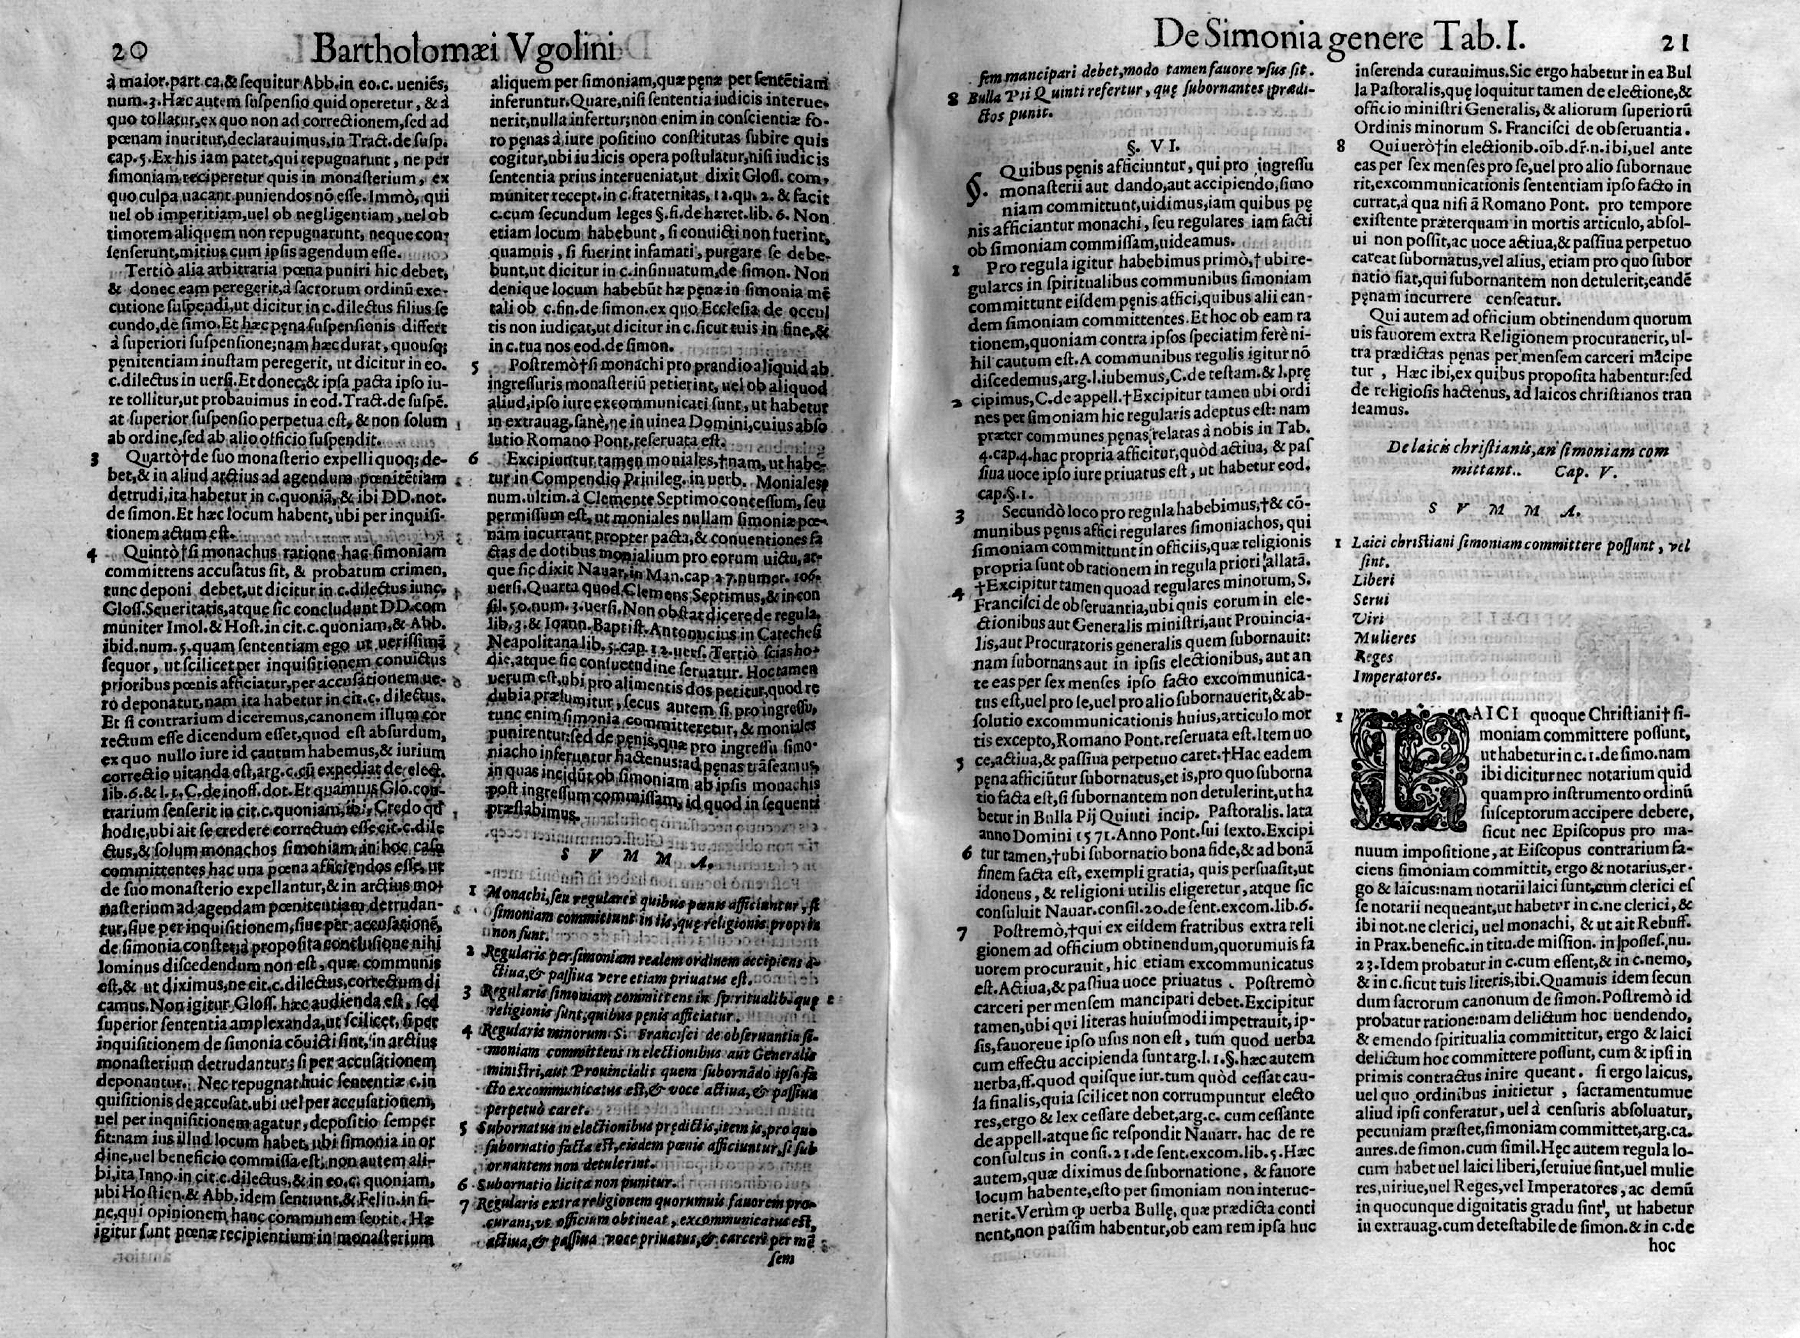 20 Bartholomæi Vgolini
à maior.part.ca.& sequitur Abb.in eo.c. ueniẽs,
num.3. Hæc autem suspensio quid operetur, & à
quo tollatur, ex quo non ad correctionem, sed ad
pœnam inuritur, declarauimus, in Tract.de susp.
cap.5. Ex his iam patet, qui repugnarunt, ne per
simoniam reciperetur quis in monasterium, ex
quo culpa uacant, puniendos nõ esse. Immò, qui
uel ob imperitiam, uel ob negligentiam, uel ob
timorem aliquem non repugnarunt, neque con-
senserunt, mitius cum ipsis agendum esse.
Tertiò alia arbitraria pœna puniri hic debet,
& donec eam peregerit, à sacrorum ordinũ exe-
cutione suspendi, ut dicitur in c.dilectus filius, se
cundo, de simo. Et hæc pęna suspensionis differt
à superiori suspensione; nam hæc durat, quousq;
pęnitentiam inustam peregerit, ut dicitur in eo.
c.dilectus in uersi. Et donec, & ipsa pacta ipso iu-
re tollitur, ut probauimus in eod. Tract.de suspẽ.
at superior suspensio perpetua est, & non solum
ab ordine, sed ab alio officio suspendit.
3 Quartò† de suo monasterio expelli quoq; de-
bet, & in aliud arctius ad agendum pœnitẽtiam
detrudi, ita habetur in c.quoniã, & ibi DD. not.
de simon. Et hæc locum habent, ubi per inquisi-
tionem actum est.
4 Quintò† si monachus ratione hac simoniam
committens accusatus sit, & probatum crimen,
tunc deponi debet, ut dicitur in c.dilectus iunc.
Gloss. Seueritatis, atque sic concludunt DD. com
muniter Imol. & Host. in cit.c.quoniam, & Abb.
ibid. num.5. quam sententiam ego ut uerissimã
sequor, ut scilicet per inquisitionem conuictus
prioribus pœnis afficiatur, per accusationem ue-
rò deponatur, nam ita habetur in cit.c. dilectus.
Et si contrarium diceremus, canonem illum cor
rectum esse dicendum esset, quod est absurdum,
ex quo nullo iure id cautum habemus, & iurium
correctio uitanda est, arg.c.cũ expediat de elect.
lib.6. & l.1. C.de inoff.dot. Et quamuis Glo. con-
trarium senserit in cit.c.quoniam, ibi, Credo qđ
hodie, ubi ait se credere correctum esse cit.c.dile
ctus, & solum monachos simoniam in hoc casu
committentes hac una pœna afficiendos esse, ut
de suo monasterio expellantur, & in arctius mo-
nasterium ad agendam pœnitentiam detrudan-
tur, siue per inquisitionem, siue per accusationẽ,
de simonia constet; à proposita conclusione nihi
lominus discedendum non est, quæ communis
est, & ut diximus, ne cit.c.dilectus, correctum di
camus. Non igitur Gloss. hæc audienda est, sed
superior sententia amplexanda, ut scilicet, si per
inquisitionem de simonia cõuicti sint, in arctius
monasterium detrudantur; si per accusationem
deponantur. Nec repugnat huic sententiæ c.in
quisitionis de accusat. ubi uel per accusationem,
uel per inquisitionem agatur, depositio semper
fit: nam ius illud locum habet, ubi simonia in or
dine, uel beneficio commissa est; non autem ali-
bi, ita Inno. in cit.c.dilectus, & in eo.c. quoniam,
ubi Hostien. & Abb. idem sentiunt, & Felin. in fi-
ne, qui opinionem hanc communem sentit. Hæ
igitur sunt pœnæ recipientium in monasterium
aliquem per simoniam, quæ pęnæ per sentẽtiam
inferuntur. Quare, nisi sententia iudicis interue-
nerit, nulla infertur; non enim in conscientiæ fo-
ro pęnas à iure positiuo constitutas subire quis
cogitur, ubi iudicis opera postulatur, nisi iudicis
sententia prius interueniat, ut dixit Gloss. com-
muniter recept.in c.fraternitas, 12.qu.2. & facit
c.cum secundum leges §.fi.de hæret.lib.6. Non
etiam locum habebunt, si conuicti non fuerint,
quamuis, si fuerint infamati, purgare se debe-
bunt, ut dicitur in c.insinuatum, de simon. Non
denique locum habebũt hæ pęnæ in simonia mẽ
tali ob c.fin.de simon.ex quo Ecclesia de occul
tis non iudicat, ut dicitur in c.sicut tuis in fine, &
in c.tua nos eod.de simon.
5 Postremò† si monachi pro prandio aliquid ab
ingressuris monasteriũ petierint, uel ob aliquod
aliud, ipso iure excommunicati sunt, ut habetur
in extrauag. sanè, ne in uinea Domini, cuius abso
lutio Romano Pont. reseruata est.
6 Excipiuntur tamen moniales,† nam, ut habe-
tur in Compendio Priuileg. in uerb. Moniales
num.ultim. à Clemente Septimo concessum, seu
permissum est, ut moniales nullam simoniæ pœ-
nam incurrant propter pacta, & conuentiones fa
ctas de dotibus monialium pro eorum uictu, at-
que sic dixit Nauar. in Man.cap.27.numer. 106.
uersi. Quarta quod Clemens Septimus, & in con
sil.50.num.3.uersi. Non obstat dicere de regula.
lib.3. & Ioann. Baptist. Antonucius in Catechesi
Neapolitana lib.5.cap.12.uers. Tertiò scias ho-
die, atque sic consuetudine seruatur. Hoc tamen
uerum est, ubi pro alimentis dos petitur, quod re
dubia præsumitur, secus autem si pro ingressu,
tunc enim simonia committeretur, & moniales
punirentur: sed de pęnis, quæ pro ingressu simo-
niacho inferuntur hactenus: ad pęnas trãseamus,
in quas incidũt ob simoniam ab ipsis monachis
post ingressum commissam, id quod in sequenti
præstabimus.
S V M M A.
1 Monachi, seu regulares quibus pœnis afficiuntur, si
simoniam committunt in iis, quę religionis propria
non sunt.
2 Regularis per simoniam realem ordinem accipiens a-
ctiua, & passiua vere etiam priuatus est.
3 Regularis simoniam committens in spiritualib. quę
religionis sunt, quibus pęnis afficiatur.
4 Regularis minorum S. Francisci de obseruantia si-
moniam committens in electionibus aut Generalis
ministri, aut Prouincialis quem subornãdo ipso fa
cto excommunicatus est, & voce actiua, & passiua
perpetuò caret.
5 Subornatus in electionibus predictis, item is, pro quo
subornatio facta est, eisdem pœnis afficiuntur, si sub
ornantem non detulerint.
6 Subornatio licita non punitur.
7 Regularis extra religionem quorumuis fauorem pro-
curans, vt officium obtineat, excommunicatus est,
actiua, & passiua voce priuatus, & carceri per mẽ
sem
De Simonia genere Tab. I. 21
sem mancipari debet, modo tamen fauore vsus sit.
8 Bulla Pii Quinti refertur, quę subornantes prædi-
ctos punit.
§. VI.
§. Quibus pęnis afficiuntur, qui pro ingressu
monasterii aut dando, aut accipiendo, simo
niam committunt, uidimus, iam quibus pę
nis afficiantur monachi, seu regulares iam facti
ob simoniam commissam, uideamus.
1 Pro regula igitur habebimus primò,† ubi re-
gulares in spiritualibus communibus simoniam
committunt eisdem pęnis affici, quibus alii ean-
dem simoniam committentes. Et hoc ob eam ra
tionem, quoniam contra ipsos speciatim ferè ni-
hil cautum est. A communibus regulis igitur nõ
discedemus, arg.l.iubemus, C.de testam. & l.prę
2 cipimus, C.de appell.† Excipitur tamen ubi ordi
nes per simoniam hic regularis adeptus est: nam
præter communes pęnas relatas à nobis in Tab.
4.cap.4.hac propria afficitur, quòd actiua, & pas
siua uoce ipso iure priuatus est, ut habetur eod.
cap.§.1.
3 Secundò loco pro regula habebimus,† & cõ-
munibus pęnis affici regulares simoniachos, qui
simoniam committunt in officiis, quæ religionis
propria sunt ob rationem in regula priori allatã.
4 † Excipitur tamen quoad regulares minorum, S.
Francisci de obseruantia, ubi quis eorum in ele-
ctionibus aut Generalis ministri, aut Prouincia-
lis, aut Procuratoris generalis quem subornauit:
nam subornans aut in ipsis electionibus, aut an
te eas per sex menses ipso facto excommunica-
tus est, uel pro se, uel pro alio subornauerit, & ab-
solutio excommunicationis huius, articulo mor
tis excepto, Romano Pont. reseruata est. Item uo
5 ce, actiua, & passiua perpetuo caret.† Hac eadem
pęna afficiũtur subornatus, et is, pro quo suborna
tio facta est, si subornantem non detulerint, ut ha
betur in Bulla Pij Quinti incip. Pastoralis. lata
anno Domini 1571. Anno Pont. sui sexto. Excipi
6 tur tamen,† ubi subornatio bona fide, & ad bonã
finem facta est, exempli gratia, quis persuasit, ut
idoneus, & religioni utilis eligeretur, atque sic
consuluit Nauar. consil.20.de sent.excom.lib.6.
7 Postremò,† qui ex eisdem fratribus extra reli
gionem ad officium obtinendum, quorumuis fa
uorem procurauit, hic etiam excommunicatus
est. Actiua, & passiua uoce priuatus. Postremò
carceri per mensem mancipari debet. Excipitur
tamen, ubi qui literas huiusmodi impetrauit, ip-
sis, fauoreue ipso usus non est, tum quod uerba
cum effectu accipienda sunt arg.l.1.§.hæc autem
uerba, ff.quod quisque iur.tum quòd cessat cau-
sa finalis, quia scilicet non corrumpuntur electo
res, ergo & lex cessare debet, arg.c. cum cessante
de appell. atque sic respondit Nauarr. hac de re
consultus in consi.21.de sent.excom.lib.5. Hæc
autem, quæ diximus de subornatione, & fauore
locum habente, esto per simoniam non interue-
nerit. Verùm qp uerba Bullę, quæ prædicta conti
nent, non passim habentur, ob eam rem ipsa huc
inserenda curauimus. Sic ergo habetur in ea Bul
la Pastoralis, quę loquitur tamen de electione, &
officio ministri Generalis, & aliorum superiorũ
Ordinis minorum S. Francisci de obseruantia.
8 Qui uerò† in electionib.oĩb.dr̃.n.ibi, uel ante
eas per sex menses pro se, uel pro alio subornaue
rit, excommunicationis sententiam ipso facto in
currat, à qua nisi ã Romano Pont. pro tempore
existente præterquam in mortis articulo, absol-
ui non possit, ac uoce actiua, & passiua perpetuo
careat subornatus, vel alius, etiam pro quo subor
natio fiat, qui subornantem non detulerit, eandẽ
pęnam incurrere censeatur.
Qui autem ad officium obtinendum quorum
uis fauorem extra Religionem procurauerit, ul-
tra prædictas pęnas per mensem carceri mãcipe
tur, Hæc ibi, ex quibus proposita habentur: sed
de religiosis hactenus, ad laicos christianos tran
seamus.
De laicis christianis, an simoniam com
mittant. Cap. V.
S V M M A.
1 Laici christiani simoniam committere possunt, vel
sint.
Liberi
Serui
Viri
Mulieres
Reges
Imperatores.
1 LAICI quoque Christiani† si-
moniam committere possunt,
ut habetur in c.1.de simo.nam
ibi dicitur nec notarium quid
quam pro instrumento ordinũ
susceptorum accipere debere,
sicut nec Episcopus pro ma-
nuum impositione, at Eiscopus contrarium fa-
ciens simoniam committit, ergo & notarius, er-
go & laicus: nam notarii laici sunt, cum clerici es
se notarii nequeant, ut habetur in c.ne clerici, &
ibi not.ne clerici, uel monachi, & ut ait Rebuff.
in Prax.benefic.in titu.de mission. in posses, nu.
23. Idem probatur in c.cum essent, & in c.nemo,
& in c.sicut tuis literis, ibi. Quamuis idem secun
dum sacrorum canonum de simon. Postremò id
probatur ratione: nam delictum hoc uendendo,
& emendo spiritualia committitur, ergo & laici
delictum hoc committere possunt, cum & ipsi in
primis contractus inire queant. si ergo laicus,
uel quo ordinibus initietur, sacramentumue
aliud ipsi conferatur, uel à censuris absoluatur,
pecuniam præstet, simoniam committet, arg.ca.
aures.de simon.cum simil. Hęc autem regula lo-
cum habet uel laici liberi, seruiue sint, uel mulie
res, uiriue, uel Reges, vel Imperatores, ac demũ
in quocunque dignitatis gradu sint, ut habetur
in extrauag.cum detestabile de simon. & in c.de
hoc